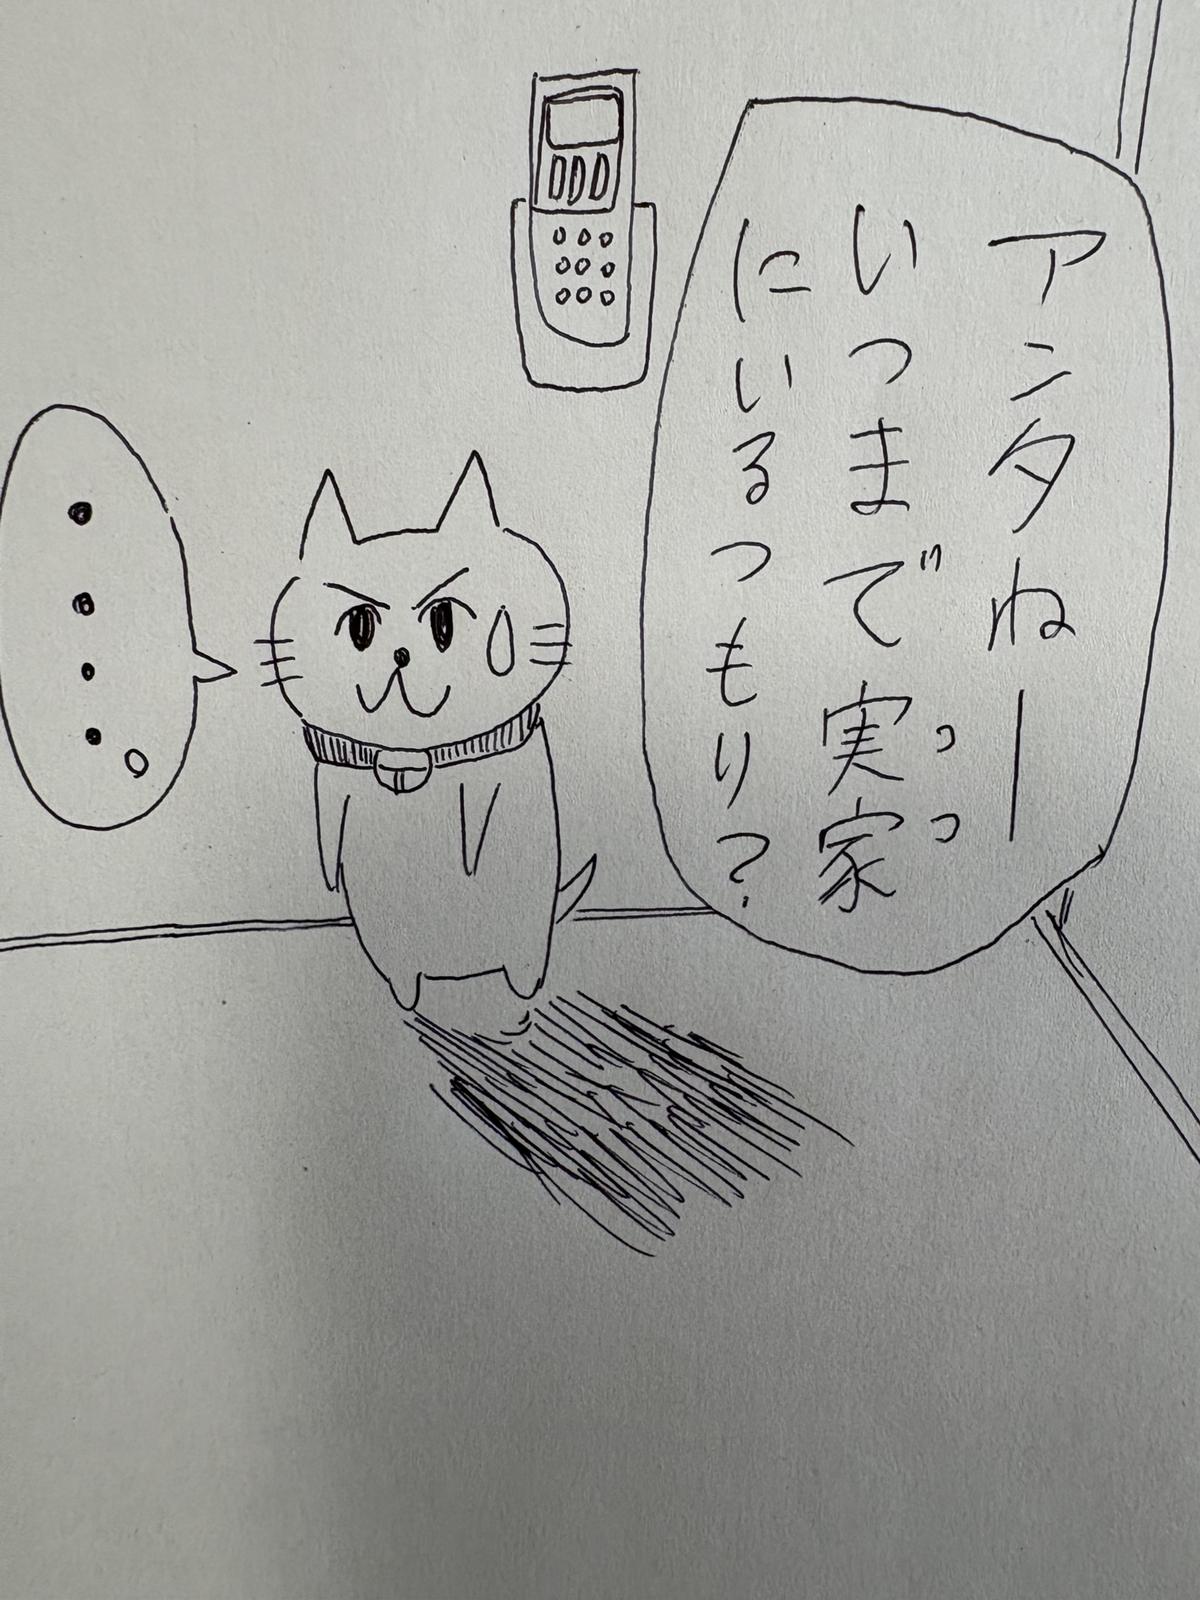 アンタねー
いつまで実家
にいるつもり？
・・・・。